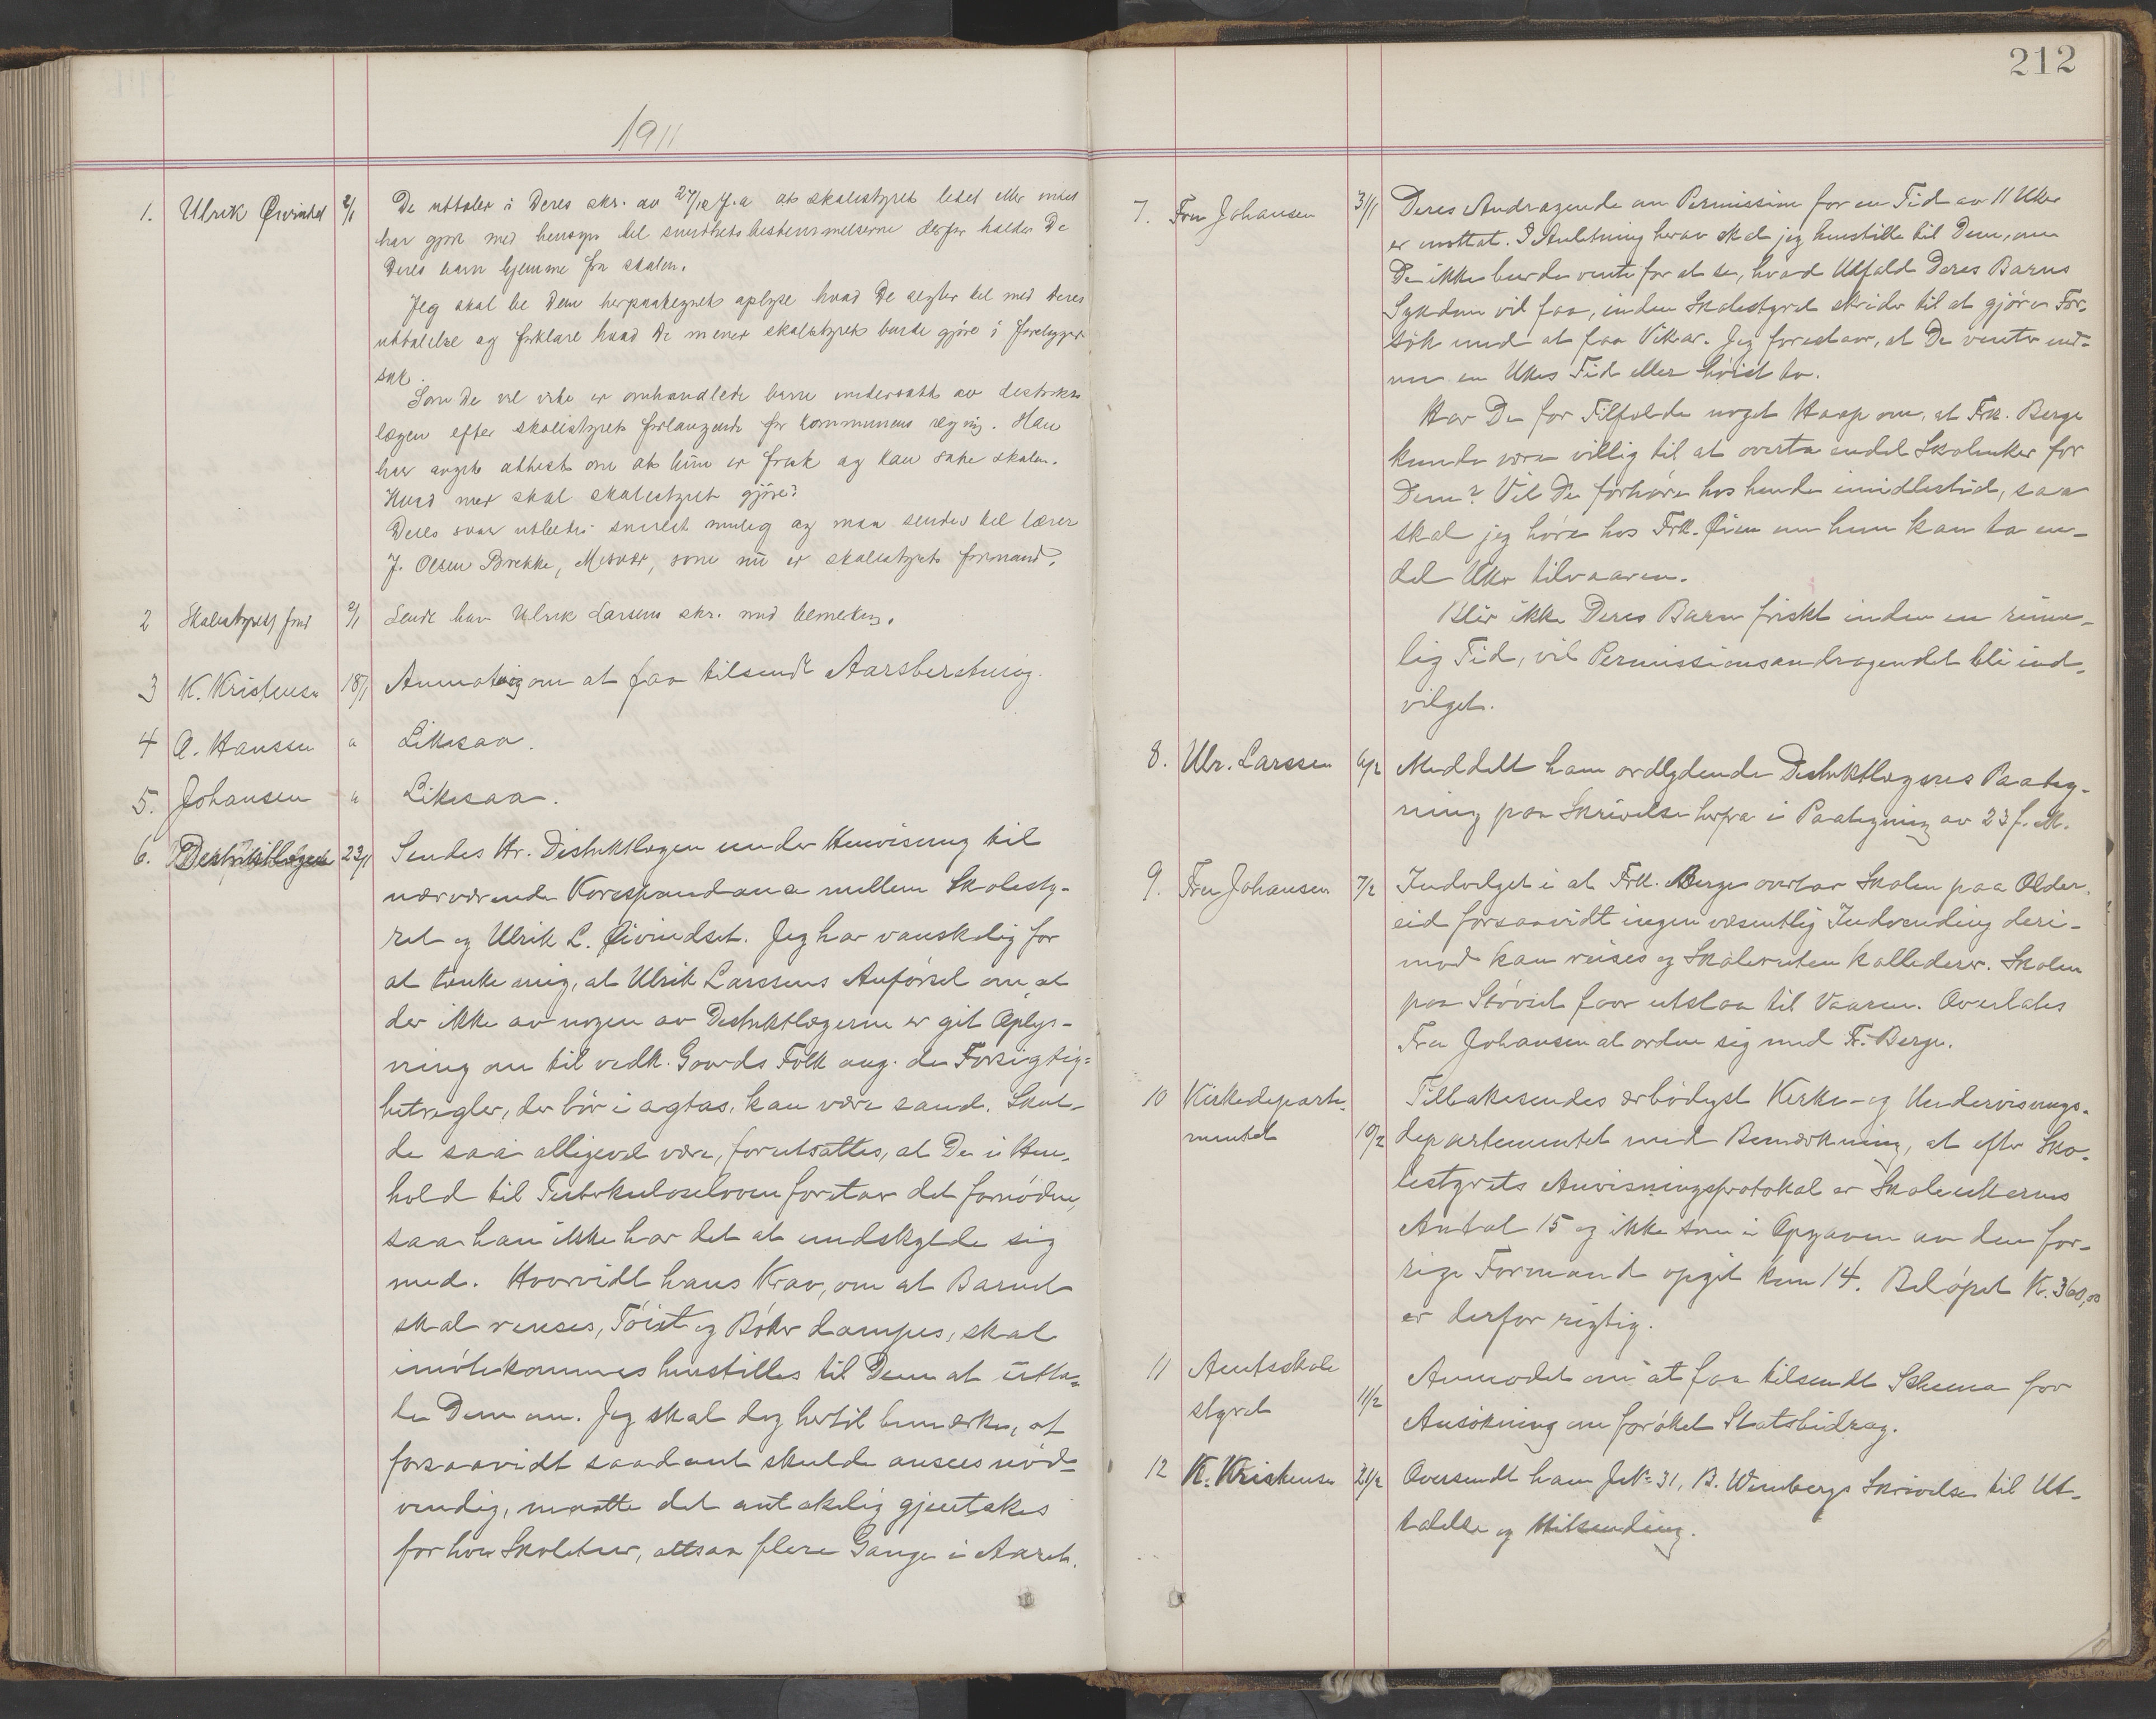 1911
1. Ulrik Øivindset 2/1 De uttaler i Deres skr. av 27/12 f.a at skolestyret litet eller intet
har gjort med hensyn til sundhetsbestemmelserne derfor holder De
Deres barn hjemme fra skolen.
Jeg skal be Dem herpaategnet oplyse hvad De sigter til med Deres
uttalelse og forklare hvad De mener skolestyret burde gjøre i foreliggende
sak.
Som De vil vite er omhandlede barn undersøkt av distrikts
lægen efter skolestyrets forlangende for kommunens regning. Han
har avgit attest om at hun er frisk og kan søke skolen.
Hvad mer skal skolestyret gjøre?
Deres svar utbedes snarest mulig og maa sendes til lærer
J. Olsen Brekke, Mosvær, som nu er skolestyrets formand.
2 Skolestyrets fmd 2/1 Sendt ham Ulrik Larsens skr. med bemerkn.
3 K. Kristensen 18/1 Anmodning om at faa tilsendt Aarsberetning.
4 O. Hanssen " Likesaa.
5. Johansen " Likesaa.
6. Distriktslægen 23/1 Sendes Hr. Distriktlægen under Henvisning til
nærværende Korespondanse mellem Skolesty-
ret og Ulrik L. Øivindset. Jeg har vanskelig for
at tænke mig, at Ulrik Larssens Anførsel om, at
der ikke av nogen av Distriktlægerne er git Oplys-
ning om til vedk. Gaards Folk ang. de Forsigtig-
hetsregler, der bør i agtas, kan være sand. Skul-
de saa alligevel være, forutsættes, at De i Hen-
hold til Tuberkuloseloven foretar det fornødne,
saa han ikke har det at undskylde sig
med. Hvorvidt hans Krav, om at Barnet
skal renses, Tøiet og Bøker dampes, skal
imøtekommes henstilles til Dem at utta-
le Dem om. Jeg skal dog hertil bemærke, at
forsaavidt saadant skulde ansees nød-
vendig, maatte det antakelig gjentakes
for hver Skoletur, altsaa flere Gange i Aaret.
212
7. Fru Johansen 31/1 Deres Andragende om Permission for en Tid av 11 Uker
er mottat. I Anledning herav skal jeg henstille til Dem, om
De ikke burde vente for at se, hvad Utfald Deres Barns
Sykdom vil faa, inden Skolestyret skrider til at gjøre For-
søk med at faa Vikar. Jeg foreslaar, at De venter end-
nu en Ukes Tid eller høist to.
Har De for Tilfælde noget Haap om, at Frk. Berge
kunde være villig til at overta endel Skoleuker for
Dem? Vil De forhøre hos hende imidlertid, saa
skal jeg høre hos Frk. Øien om hun kan ta en-
del Uker tilvaaren.
Blir ikke Deres Barn friskt inden en rime-
lig Tid, vil Permissionsandragendet bli ind-
vilget.
8. Ulr. Larssen 6/2 Meddelt ham ordlydende Distriktlægenes Paateg-
ning paa Skrivelse herfra i Paategning av 23 f. M.
9. Fru Johansen 7/2 Indvilget i at Frk. Berge overtar Skolen paa Older-
eid forsaavidt ingen væsentlig Indvending deri-
mod kan reises og Skoleruten kalleder. Skolen
paa Størvik faar utstaa til Vaaren. Overlates
Fru Johansen at ordne sig med Fr. Berge.
10 Kirkedeparte- Tilbakesendes ærbødigst Kirke- og Undervisnings-
mentet 10/2 departementet med Bemærkning, at efter Sko-
lestyrets Anvisningsprotokol er Skoleukernes
Antal 15 og ikke som i Opgaven av den for-
rige Formand opgit kun 14. Beløpet K. 360,00
er derfor rigtig.
11 Amtsskole Anmodet om at faa tilsendt Schema for
styret 11/2 Ansøkning om forøket Statsbidrag.
12 K. Kristensen 21/2 Oversendt ham JNo 31, B. Winsbergs Skrivelse til Ut-
talelse og Hitsending.